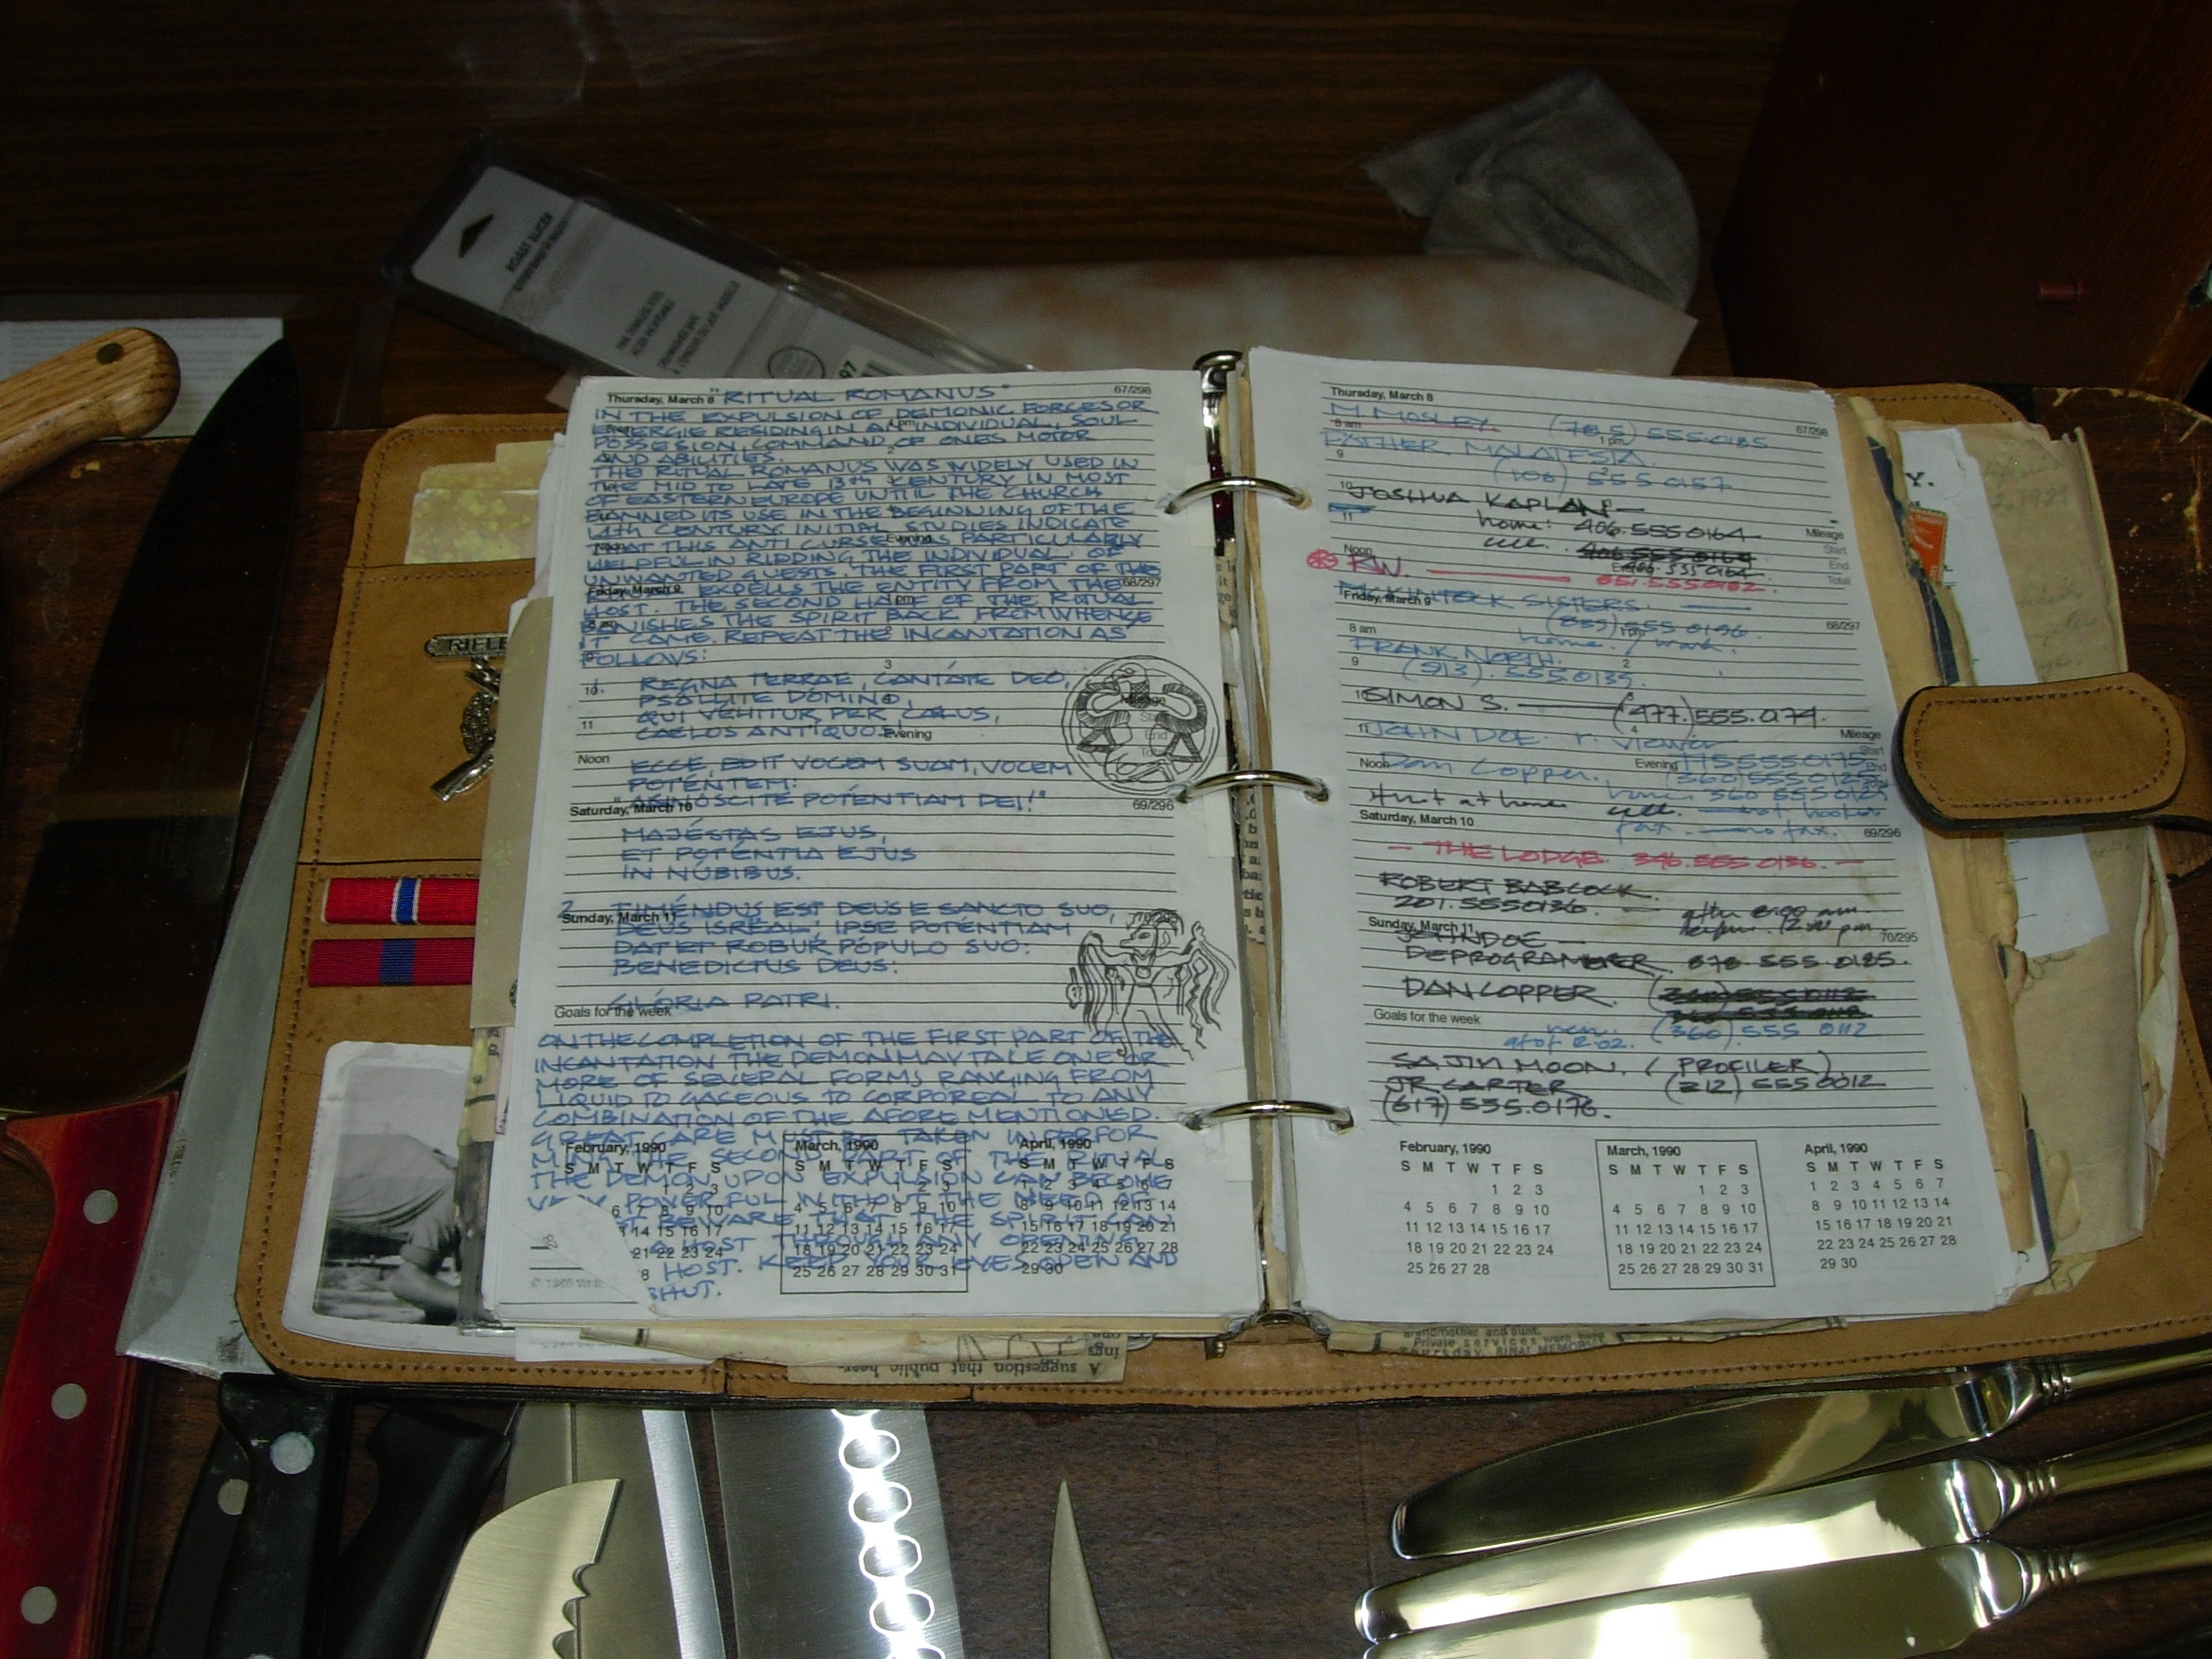 ROAST SLICER
97
Y.
RIFLE
Thursday, March 8 "RITUAL ROMANUS" 67/298
IN THE EXPULSION OF DEMONIC FORCES OR
ENERGIE RESIDING IN AN INDIVIDUAL, SOUL
POSSESSION, COMMAND OF ONES MOTOR
AND ABILITIES.
THE RITUAL ROMANUS WAS WIDELY USED IN
THE MID TO LATE 13TH CENTURY IN MOST
OF EASTERN EUROPE UNTIL THE CHURCH
BANNED ITS USE IN THE BEGINNING OF THE
14TH CENTURY. INITIAL STUDIES INDICATE
THAT THIS ANTI CURSE WAS PARTICULARLY
HELPFUL IN RIDDING THE INDIVIDUAL OF
UNWANTED GUESTS. THE FIRST PART OF THE
Friday, March 9 EXPELLS THE ENTITY FROM THE 68/297
HOST. THE SECOND HALF OF THE RITUAL
BANISHES THE SPIRIT BACK FROM WHENCE
IT CAME. REPEAT THE INCANTATION AS
FOLLOWS:
1. REGNA TERRAE, CANTÁTE DEO,
PSÁLLITE DÓMINO,
QUI VEHITUR PER CAELUS,
CAELOS ANTIQUOS
Evening
Noon
ECCE, EDIT VOCEM SUAM, VOCEM
POTÉNTEM:
"AGNOSCITE POTÉNTIAM DEI!"
Saturday, March 10 69/296
MAJÉSTAS EJUS,
ET POTÉNTIA EJUS
IN NÚBIBUS.
2. TIMÉNDUS EST DEUS E SANCTO SUO,
Sunday, March 11
DEUS ISRÁEL, IPSE POTÉNTIAM
DAT ET ROBUR PÓPULO SUO:
BENEDICTUS DEUS:
GLÓRIA PATRI.
Goals for the week
ON THE COMPLETION OF THE FIRST PART OF THE
INCANTATION THE DEMON MAY TAKE ONE OR
MORE OF SEVERAL FORMS RANGING FROM
LIQUID TO GACEOUS TO CORPOREAL TO ANY
COMBINATION OF THE AFORE MENTIONED.
GREAT CARE MUST BE TAKEN IN PERFOR
MING THE SECOND PART OF THE RITUAL
THE DEMON UPON EXPULSION CAN BECOME
VERY POWERFUL WITHOUT THE NEED OF
BEWARE THAT THE SPIRIT CAN
HOST THROUGH ANY OPENING
HOST. KEEP YOUR EYES OPEN AND
SHUT.
February, 1990 March, 1990 April, 1990
Thursday, March 8 67/298
M. MOSLEY. (785) 555.0185
8 am 1 pm
FATHER MALATESTA
9
(106) 555 0157
10 JOSHUA KAPLAN
11
home: 406.555.0164 Mileage
cell. Start
Noon End
R.W. 651.555.0182. Total
MCKINTOCK SISTERS.
Friday, March 9
(659) 555 0196. 68/297
8 am home / work.
FRANK NORTH.
9 (913). 555.0135.
10 SIMON S. (477.) 555.0174.
11 JOHN DOE. Mileage
Noon Dan Copper. Evening
(360) 555 0125
cell.
fax. no fax.
Saturday, March 10 69/296
THE LODGE. 346.555 0136.
ROBERT BABCOCK.
201.5550136 after 8:00 am.
before 12:00 pm.
Sunday, March 11 70/295
JOHN DOE
DEPROGRAMMER 878.555.0185.
DAN COPPER.
Goals for the week
new. (360). 555 0112
as of 2.02.
SA JIM MOON. (PROFILER)
JR CARTER (212) 555 0012
(617) 555.0176.
February, 1990
S M T W T F S
1 2 3
4 5 6 7 8 9 10
11 12 13 14 15 16 17
18 19 20 21 22 23 24
25 26 27 28
March, 1990
S M T W T F S
1 2 3
4 5 6 7 8 9 10
11 12 13 14 15 16 17
18 19 20 21 22 23 24
25 26 27 28 29 30 31
April, 1990
S M T W T F S
1 2 3 4 5 6 7
8 9 10 11 12 13 14
15 16 17 18 19 20 21
22 23 24 25 26 27 28
29 30
A suggestion that public
ings
grandmother and aunt.
Private services were